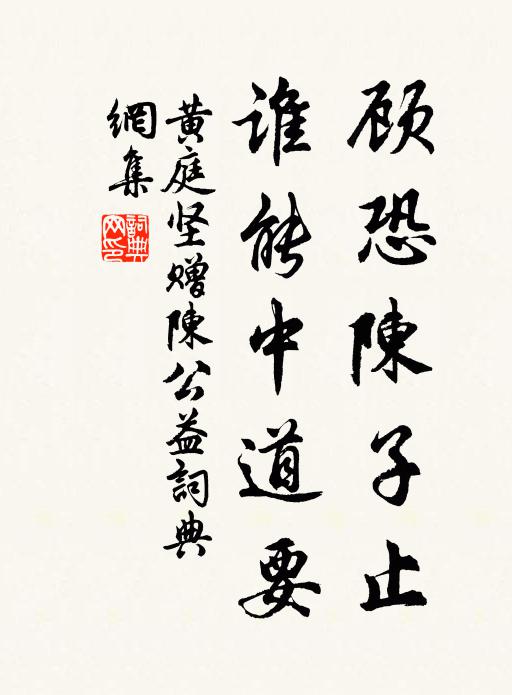 顾恐陳子止
誰能中道要
黄庭坚赠陳公益詞典
網集
詞典
网印